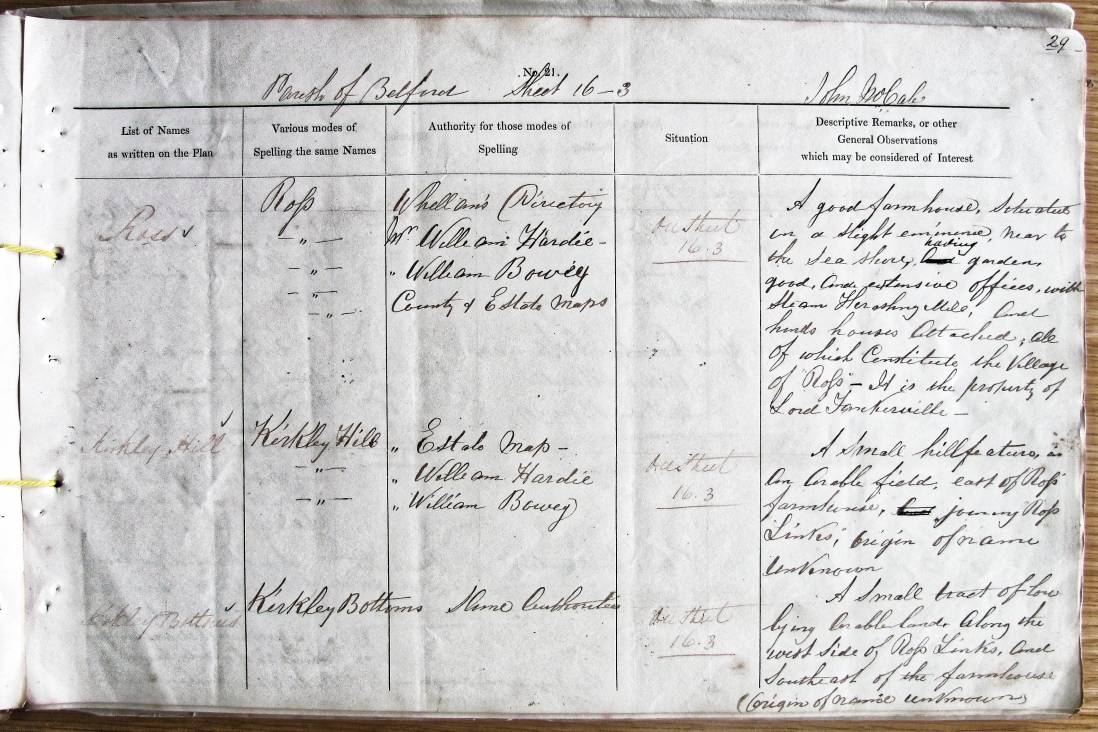 29
No. 21.
Parish of Belford Sheet 16-3 John McCabe
List of Names
as written on the Plan
Various modes of
Spelling the same Names
Authority for those modes of
Spelling
Situation
Descriptive Remarks, or other
General Observations
which may be considered of Interest
Ross
Ross
— „ —
— „ —
— „ —
— „ —
Whellan's Directory
Mr. William Hardie -
„ William Bowey
County & Estate Maps
On Sheet
16.3
A good farmhouse, situated
on a slight eminence, near to
the sea shore, having garden,
good, and extensive offices, with
steam Thrashing Mill, and
hinds houses attached; all
of which Constitute the Village
of "Ross" - It is the property of
Lord Tankerville -
Kirkley Hill
Kirkley Hill
— „ —
— „ —
„ Estate Map -
„ William Hardie
„ William Bowey
On Sheet
16.3
A small hill feature, in
an arable field, east of Ross
farmhouse, joining "Ross
Links", origin of name
unknown
Bottoms
Kirkley Bottoms
Same Authorities
On Sheet
16.3
A small tract of low
lying arable land, along the
west side of Ross Links, and
Southeast of the farmhouse
(origin of name unknown)